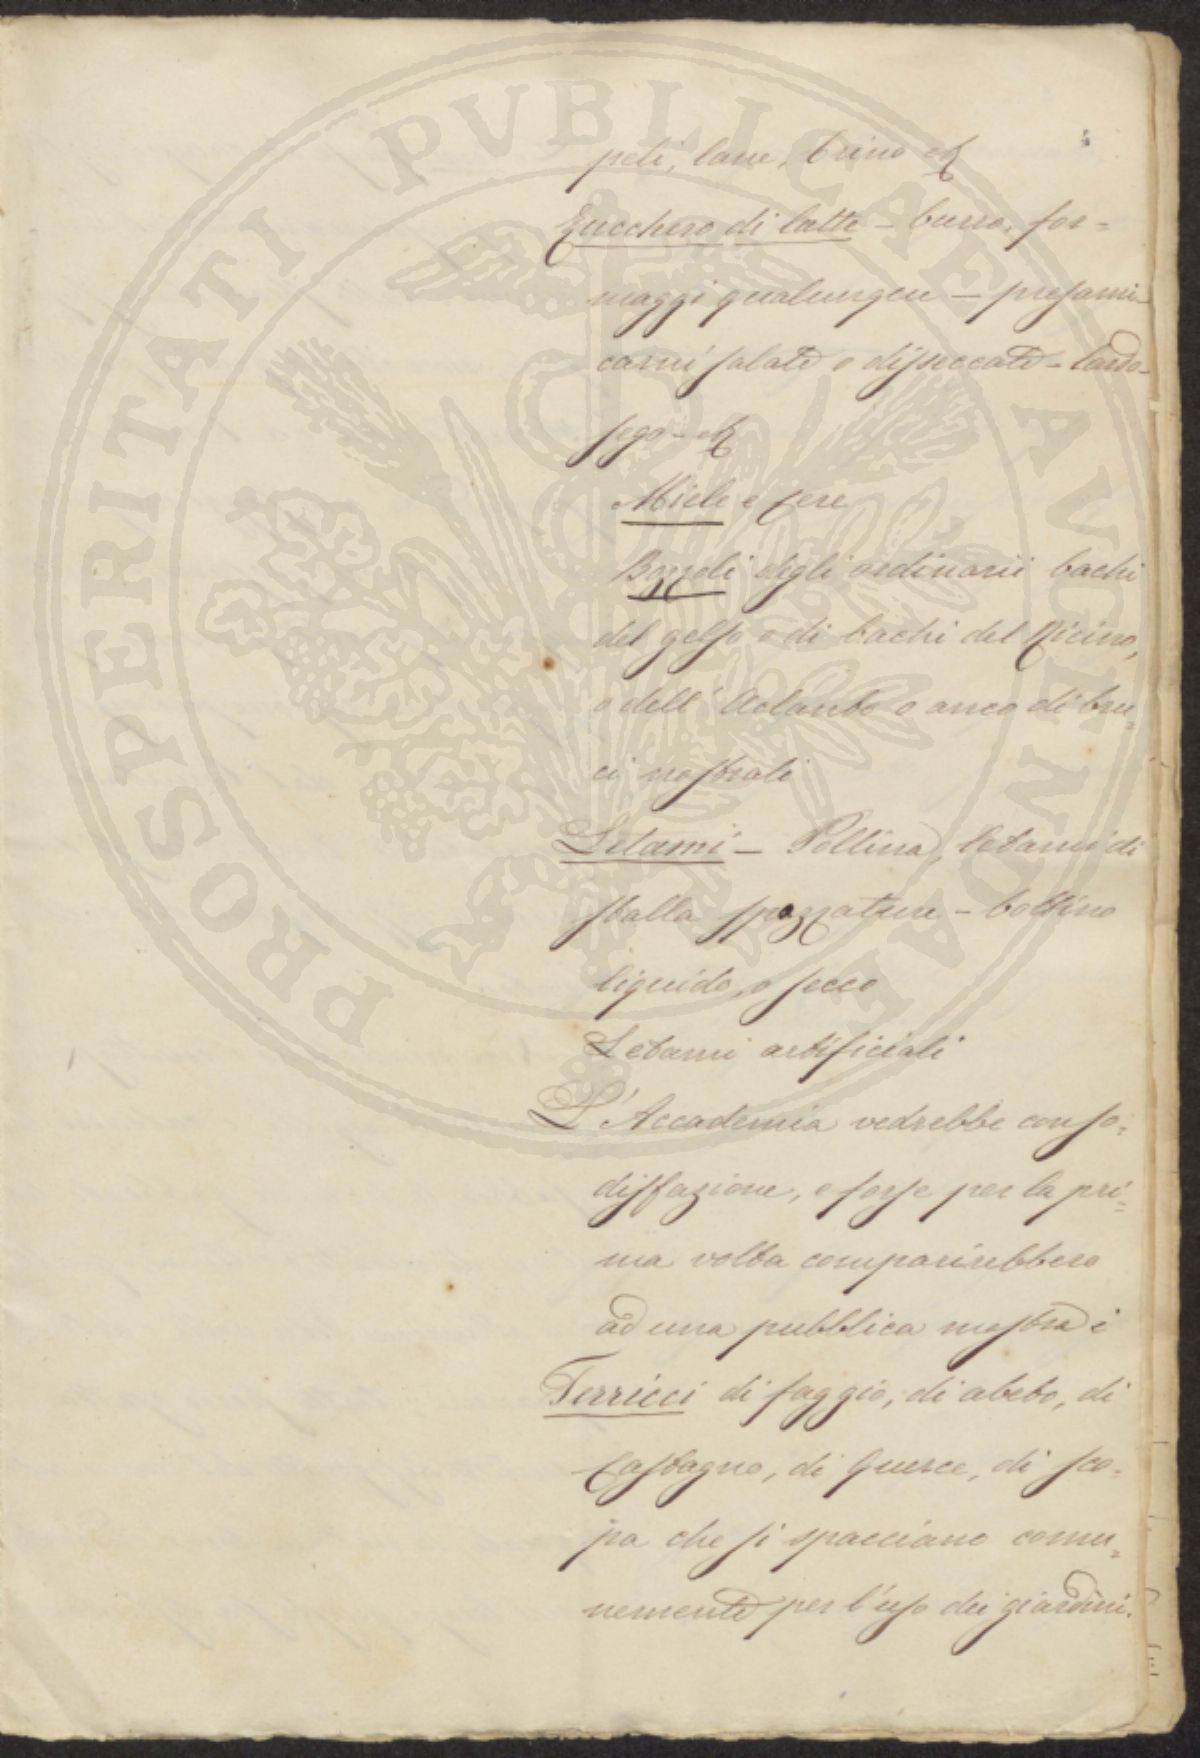 peli, lane, Crino &
Zucchero di latte – burro, for=
maggi qualunque – presami–
carni salate o disseccate – lardo–
sego – &
Miele e Cere
Bozzoli degli ordinarii bachi
del gelso o di bachi del Ricino,
o dell' Aelanto o anco di bru=
ci nostrali
Letami – Pollina, letami di
stalla spazzature – bottino
liquido, o secco
Letami artificiali
L'Accademia vedrebbe con so=
disfazione, e forse per la pri=
ma volta comparirebbero
ad una pubblica mostra i
Terricci di faggio, di abeto, di
Castagno, di Querce, di sco=
pa che si spacciano comu=
nemente per l'uso dei giardini.
PROSPERITATI PVBLICAE AVGENDAE